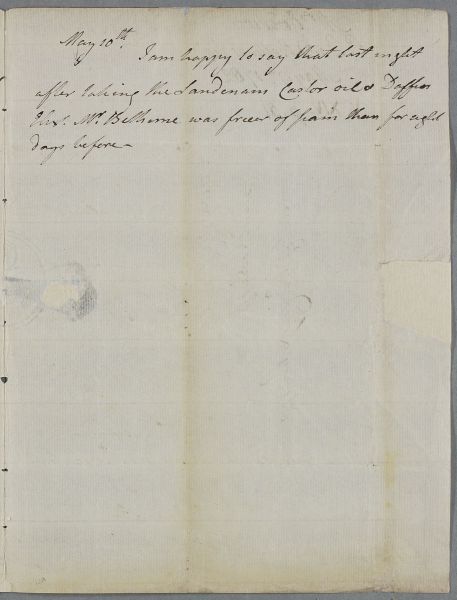 May 10th.
I am happy to say that last night
after taking the Laudenam Castor oil & Daffies
Elixr. Mr. Bethune was freer of pain than for eight
days before —